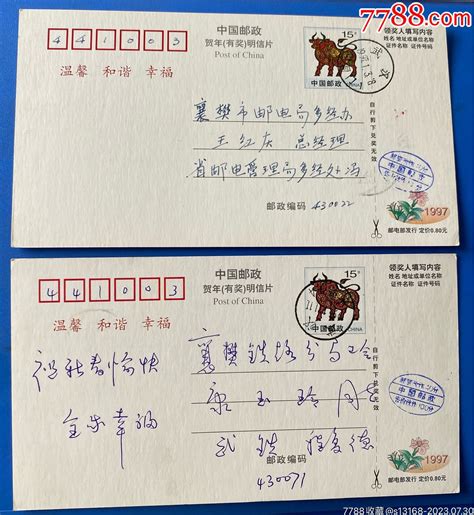 7788.com
中国收藏热线
441003
中国邮政
贺年(有奖)明信片
Post of China
温馨 和谐 幸福
15分
中国邮政
领奖人填写内容
姓名 地址或单位名称
证件名称 证件号码
襄樊市邮电局多经办
王红庆 总经理
省邮电管理局多经处冯
自行剪下兑奖无效
邮政编码 430022
1997
邮电部发行 定价0.80元
441003
中国邮政
贺年(有奖)明信片
Post of China
温馨 和谐 幸福
15分
中国邮政
领奖人填写内容
姓名 地址或单位名称
证件名称 证件号码
祝新春愉快
全家幸福
襄樊铁路分局工会
康玉玲
武铁 程
自行剪下兑奖无效
邮政编码
430071
1997
邮电部发行 定价0.80元
7788收藏@s13168-2023.07.30